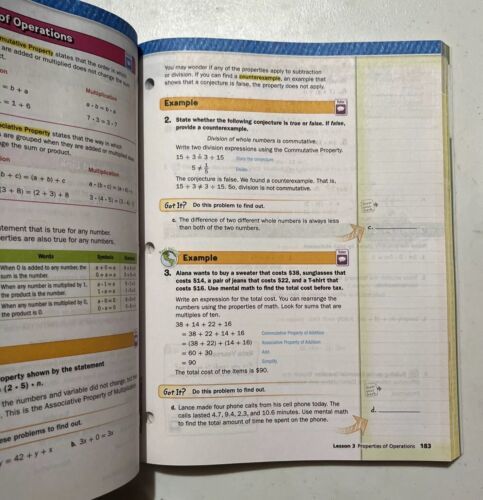 of Operations
mutative Property states that the order in
are added or multiplied does not change the
Multiplication
= b + a
a • b = b • a
= 1 + 6
7 • 3 = 3 • 7
ciative Property states that the way in
s are grouped when they are added or multiplied
nge the sum or product.
Multiplication
b + c) = (a + b) + c
(3 + 8) = (2 + 3) + 8
atement that is true for any number.
perties are also true for any numbers.
Words
Symbols
When 0 is added to any number, the
sum is the number.
When any number is multiplied by 1,
the product is the number.
When any number is multiplied by 0,
the product is 0.
operty shown by the statement
(2 • 5) • n.
the numbers and variable did not change, but the
. This is the Associative Property of Multiplication
ese problems to find out.
y = 42 + y + x
b. 3x + 0 = 3x
You may wonder if any of the properties apply to subtraction
or division. If you can find a counterexample, an example that
shows that a conjecture is false, the property does not apply.
Example
2. State whether the following conjecture is true or false. If false,
provide a counterexample.
Division of whole numbers is commutative.
Write two division expressions using the Commutative Property.
15 ÷ 3 ≟ 3 ÷ 15 State the conjecture
5 ≠ 1/5 Divide
The conjecture is false. We found a counterexample. That is,
15 ÷ 3 ≠ 3 ÷ 15. So, division is not commutative.
Got It? Do this problem to find out.
c. The difference of two different whole numbers is always less
than both of the two numbers.
c.
Example
3. Alana wants to buy a sweater that costs $38, sunglasses that
costs $14, a pair of jeans that costs $22, and a T-shirt that
costs $16. Use mental math to find the total cost before tax.
Write an expression for the total cost. You can rearrange the
numbers using the properties of math. Look for sums that are
multiples of ten.
38 + 14 + 22 + 16
= 38 + 22 + 14 + 16 Commutative Property of Addition
= (38 + 22) + (14 + 16) Associative Property of Addition
= 60 + 30 Add.
= 90 Simplify.
The total cost of the items is $90.
Got It? Do this problem to find out.
d. Lance made four phone calls from his cell phone today. The
calls lasted 4.7, 9.4, 2.3, and 10.6 minutes. Use mental math
to find the total amount of time he spent on the phone.
d.
Lesson 3 Properties of Operations 183